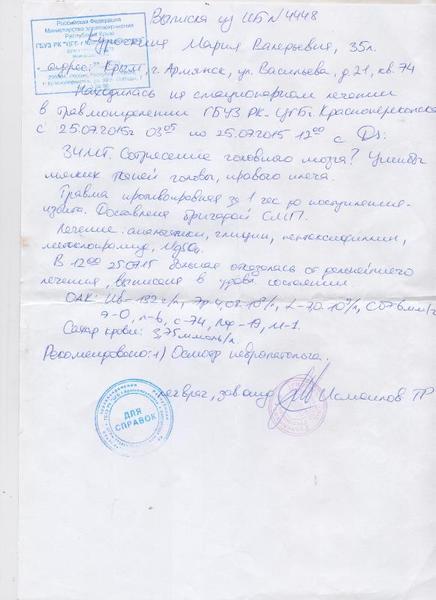 Российская Федерация
Министерство здравоохранения
Республики Крым
Выписка из ИБ № 4448
Мария Валерьевна, 35л.
адрес: Крым, г. Армянск, ул. Васильева, д. 21, кв. 74
Находилась на стационарном лечении
в травмотделении ГБУЗ РК "ЦГБ г. Красноперекопска
с 25.07.2015г 03 05 по 25.07.2015 12 00 с Ds:
ЗЧМТ. Сотрясение головного мозга? Ушибы
мягких тканей головы, правого плеча.
Травма противоправная за 1 час до поступления -
избита. Доставлена бригадой СМП.
Лечение: анальгетики, глицин, пентоксифиллин,
метоклопрамид, MgSO4.
В 12 00 25.07.15 больная отказалась от дальнейшего
лечения, выписана в удовл состоянии
ОАК: Нв - 132 г/л, Эр 4,02·10 /л, L-7,0·10 /л, СОЭ 6 мм/ч
э-0, п-6, с-74, лф-19, м-1.
Сахар крови: 3,75 ммоль/л.
Рекомендовано: 1) Осмотр невропатолога.
леч врач, зав отд Исмаилов
ДЛЯ
СПРАВОК